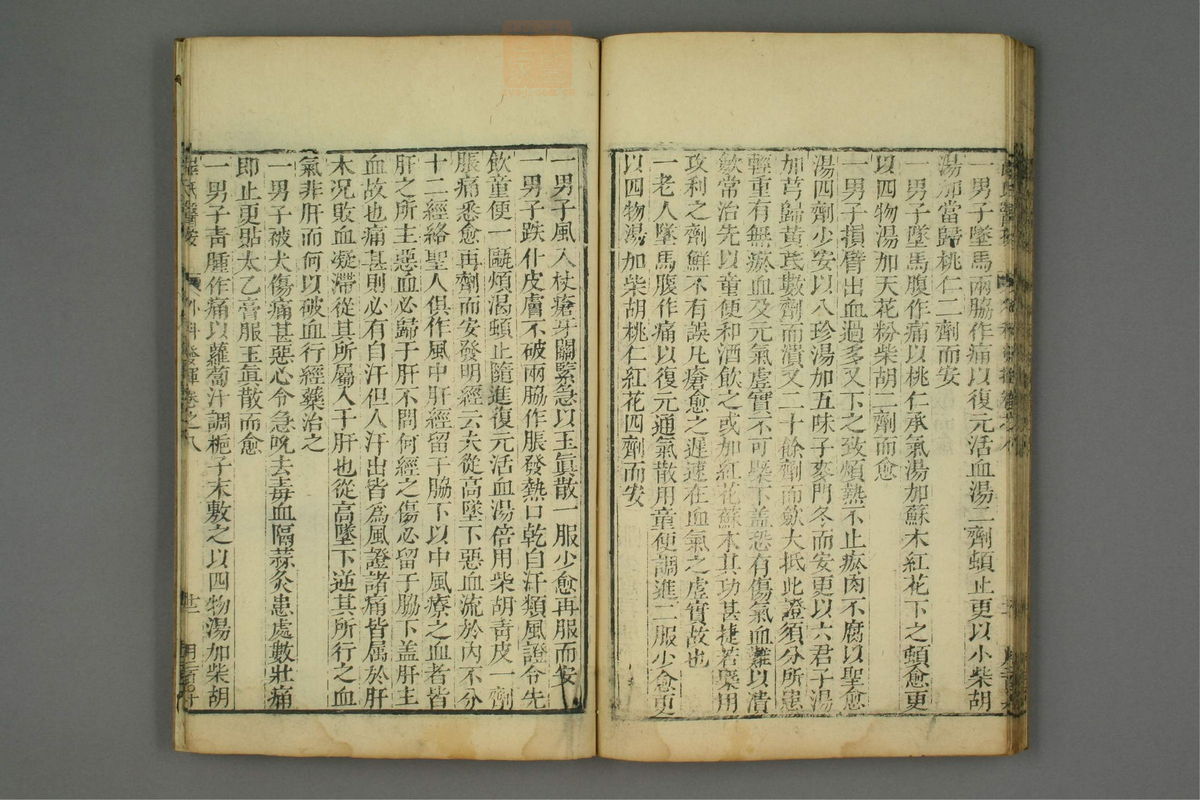 一男子墜馬兩脇作痛以復元活血湯二劑頓止更以小柴胡
湯加當歸桃仁二劑而安
一男子墜馬腹作痛以桃仁承氣湯加蘇木紅花下之頓愈更
以四物湯加天花粉柴胡二劑而愈
一男子損臂出血過多又下之致煩熱不止瘀肉不腐以聖愈
湯四劑少安以八珍湯加五味子麥門冬而安更以六君子湯
加芎歸黃芪數劑而潰又二十餘劑而斂大抵此證須分所患
輕重有無瘀血及元氣虛實不可槩下盖恐有傷氣血難以潰
斂常治先以童便和酒飲之或加紅花蘇木其功甚捷若槩用
攻利之劑鮮不有誤凡瘡愈之遲速在血氣之虛實故也
一老人墜馬腹作痛以復元通氣散用童便調進二服少愈更
以四物湯加柴胡桃仁紅花四劑而安
一男子風入杖瘡牙關緊急以玉眞散一服少愈再服而安
一男子跌仆皮膚不破兩脇作脹發熱口乾自汗類風證令先
飲童便一甌煩渴頓止隨進復元活血湯倍用柴胡青皮一劑
脹痛悉愈再劑而安發明經云夫從高墜下惡血流於內不分
十二經絡聖人俱作風中肝經留于脇下以中風療之血者皆
肝之所主惡血必歸于肝不問何經之傷必留于脇下盖肝主
血故也痛甚則必有自汗但人汗出皆爲風證諸痛皆属於肝
木况敗血凝滯從其所屬入于肝也從高墜下逆其所行之血
氣非肝而何以破血行經藥治之
一男子被犬傷痛甚惡心令急吮去毒血隔蒜灸患處數壯痛
即止更貼太乙膏服玉眞散而愈
一男子青腫作痛以蘿蔔汁調梔子末敷之以四物湯加柴胡
薛氏醫案 外科發揮卷之八